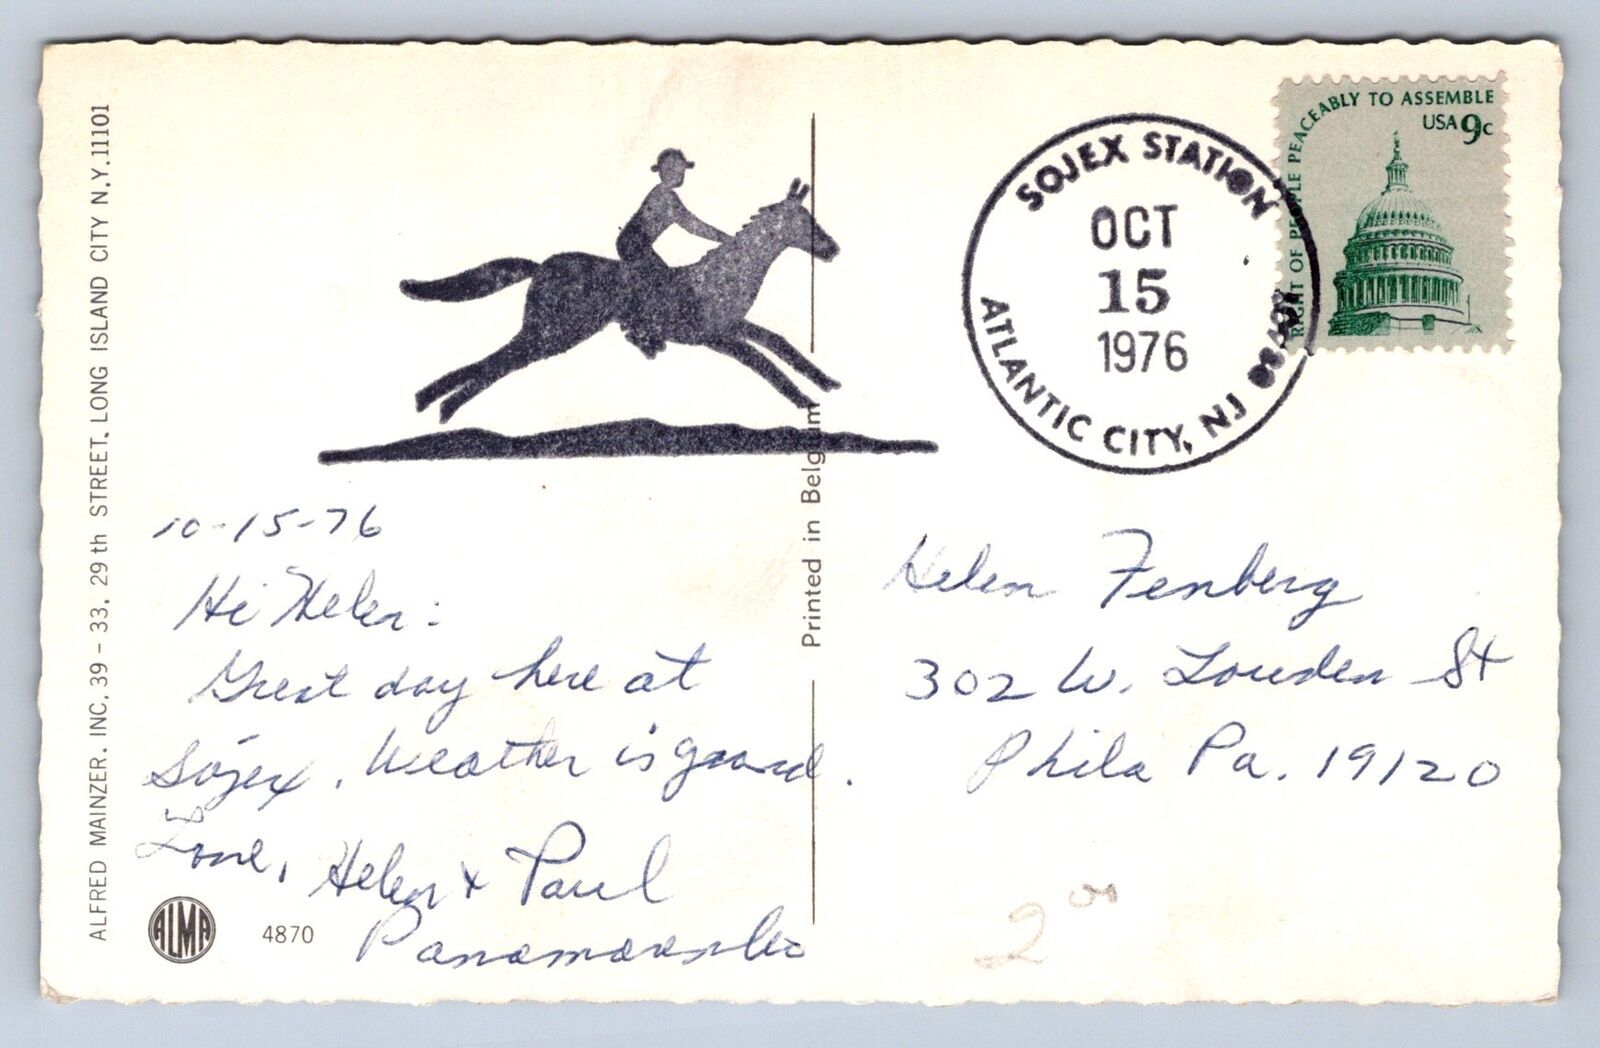 ALFRED MAINZER, INC. 39 - 33, 29 th STREET, LONG ISLAND CITY N.Y. 11101
SOJEX STATION
OCT
15
1976
ATLANTIC CITY, NJ
RIGHT OF PEOPLE PEACEABLY TO ASSEMBLE
USA 9c
Printed in Belgium
10-15-76
Hi Helen:
Great day here at
Sojex. Weather is good.
Love,
Helen & Paul
ALMA
4870
Helen Fenberg
302 W. Louden St
Phila Pa. 19120
2 00